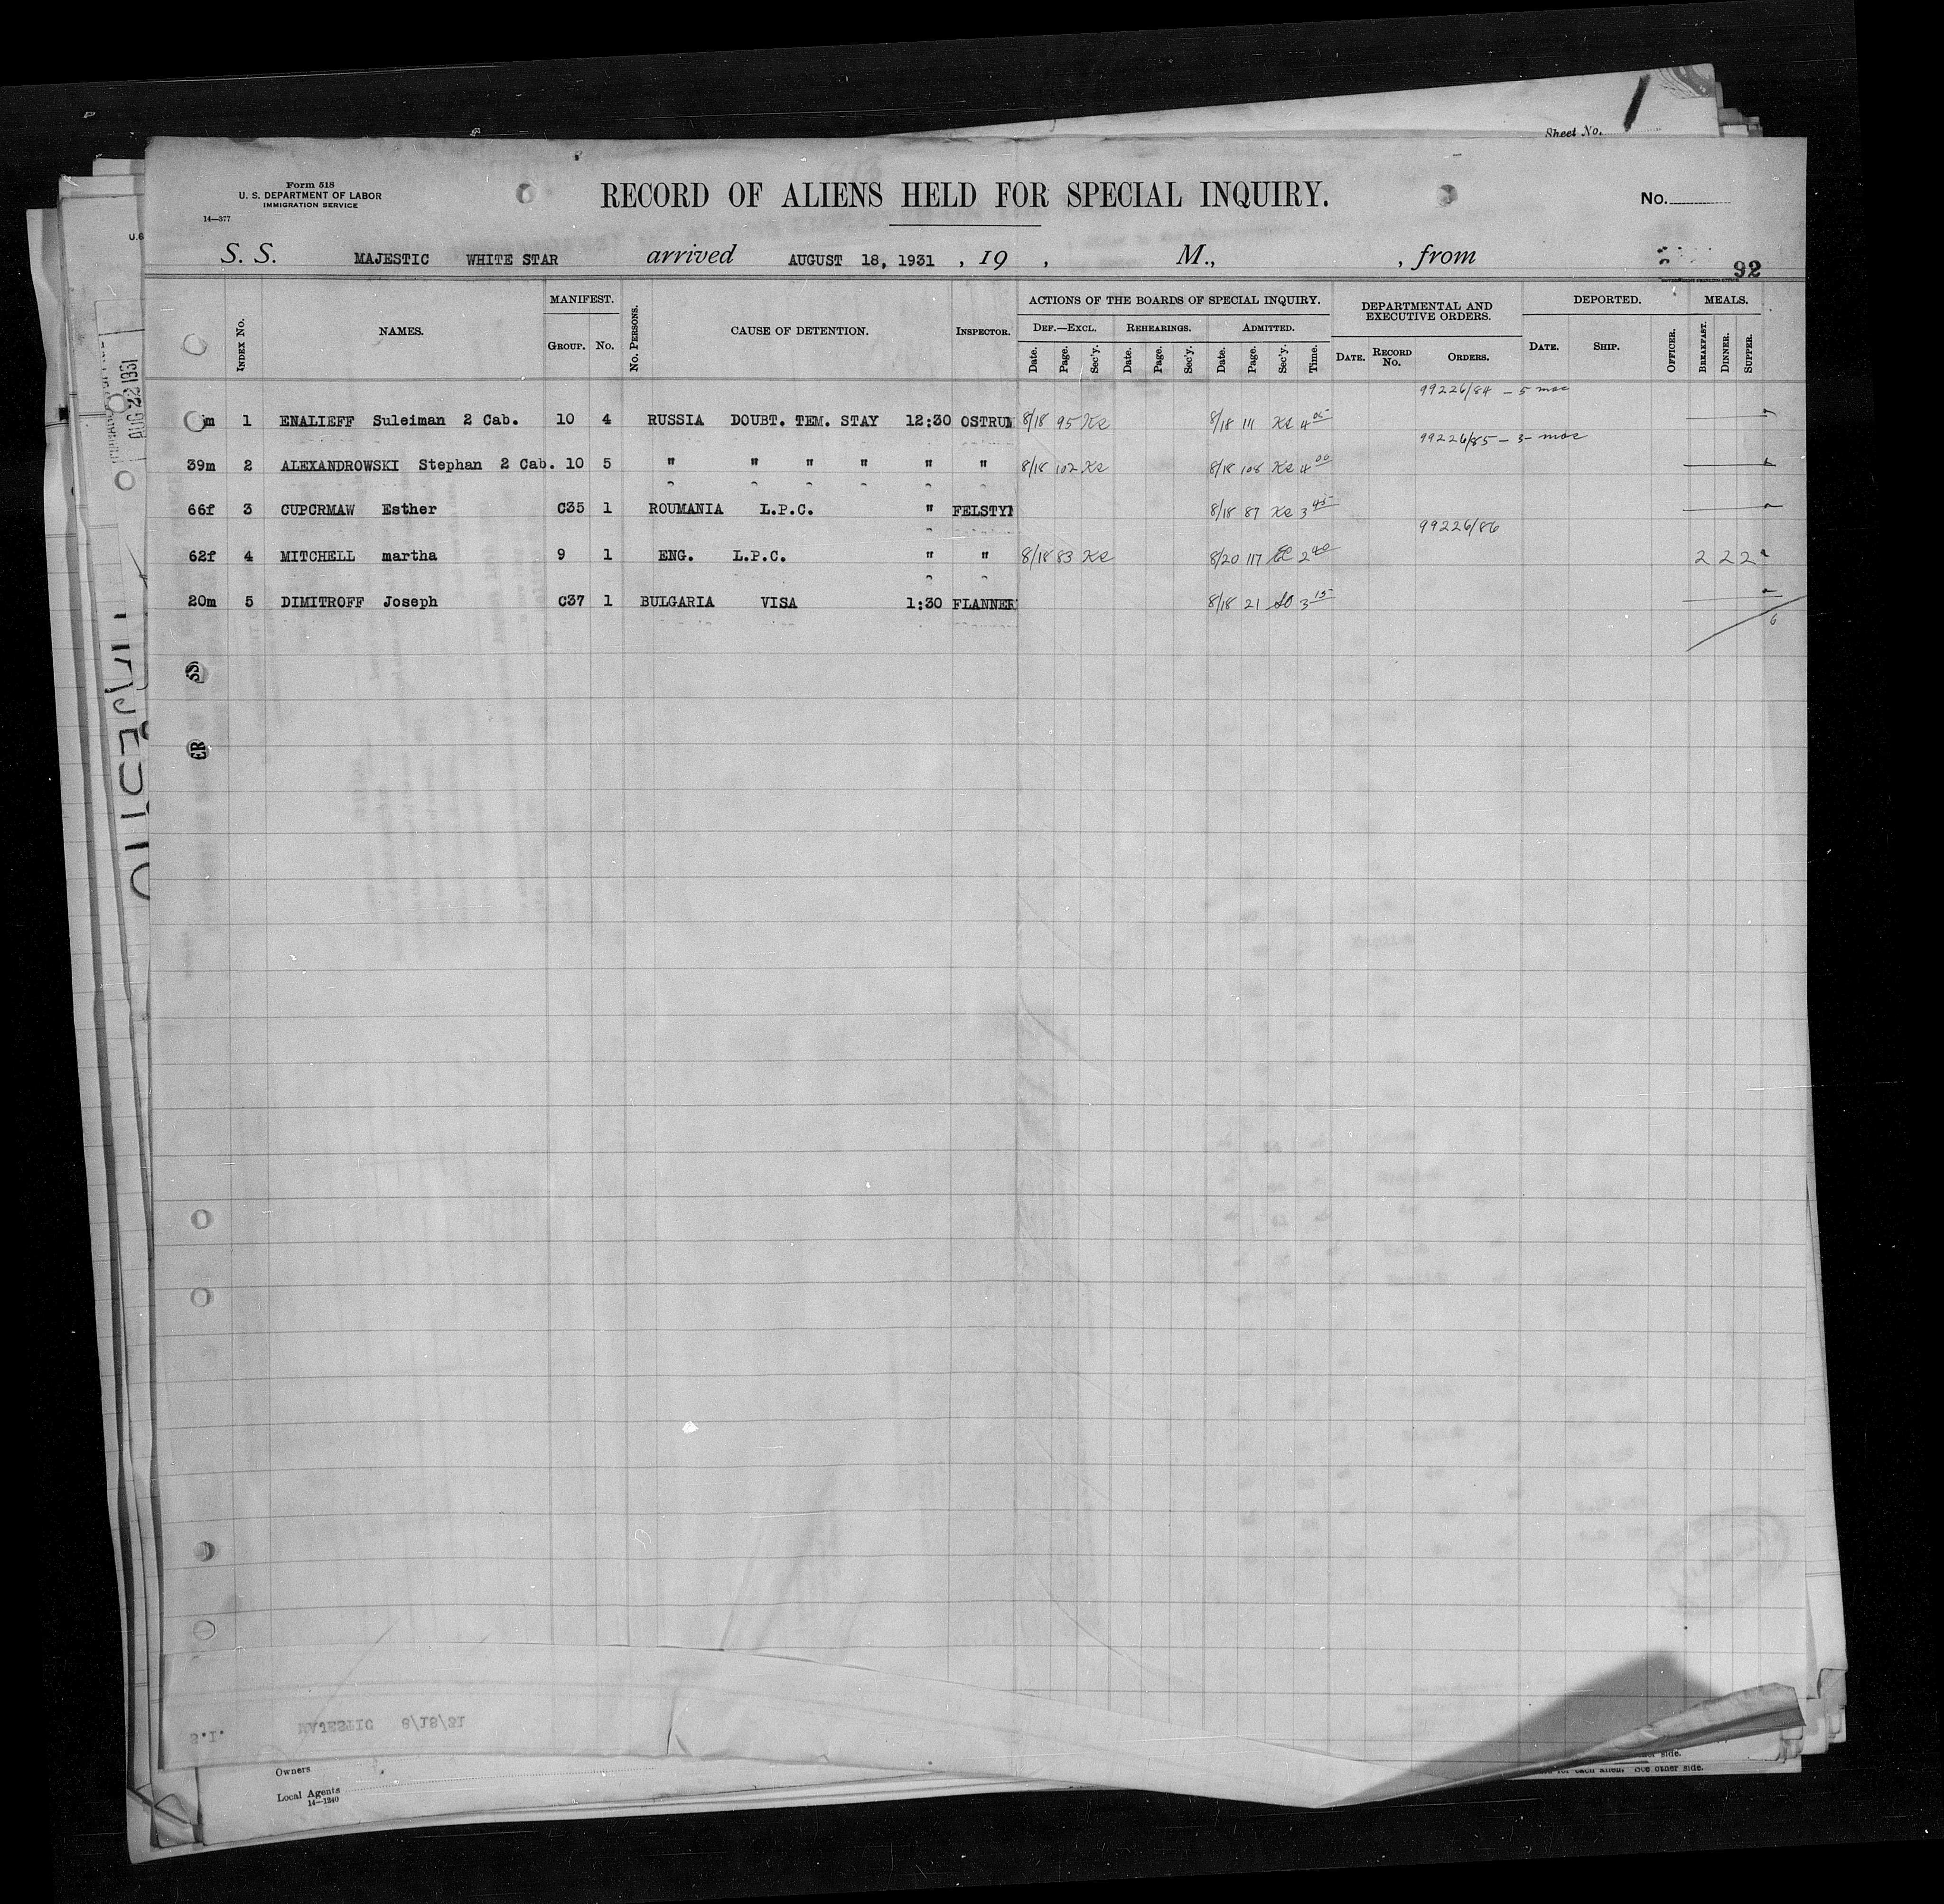 Sheet No.
Form 518
U. S. DEPARTMENT OF LABOR
IMMIGRATION SERVICE
14—377
RECORD OF ALIENS HELD FOR SPECIAL INQUIRY.
No.
S. S. MAJESTIC WHITE STAR arrived AUGUST 18, 1931 , 19 , M., , from
92
INDEX No. NAMES. MANIFEST. GROUP. No. No. PERSONS. CAUSE OF DETENTION. INSPECTOR. ACTIONS OF THE BOARDS OF SPECIAL INQUIRY. DEPARTMENTAL AND EXECUTIVE ORDERS. DEPORTED. MEALS.
DEF.—EXCL. REHEARINGS. ADMITTED.
Date. Page. Sec'y. Date. Page. Sec'y. Date. Page. Sec'y. Time. DATE. RECORD No. ORDERS. DATE. SHIP. OFFICER. BREAKFAST. DINNER. SUPPER.
99226/84 - 5 mos
m 1 ENALIEFF Suleiman 2 Cab. 10 4 RUSSIA DOUBT. TEM. STAY 12:30 OSTRUM 8/18 95 Ke 8/18 111 Ke 4 05
99226/85 - 3 - mos
39m 2 ALEXANDROWSKI Stephan 2 Cab. 10 5 " " " " " " 8/18 102 Ke 8/18 108 Ke 4 00
66f 3 CUPCRMAW Esther C35 1 ROUMANIA L.P.C. " FELSTYN 8/18 87 Ke 3 45
99226/86
62f 4 MITCHELL martha 9 1 ENG. L.P.C. " " 8/18 83 Ke 8/20 117 2 40 2 2 2
20m 5 DIMITROFF Joseph C37 1 BULGARIA VISA 1:30 FLANNER 8/18 21 3 15
6
SS
ER
MAJESTIC
S.I. MAJESTIC 8/18/31
Owners
Local Agents
14—1240
See other side.